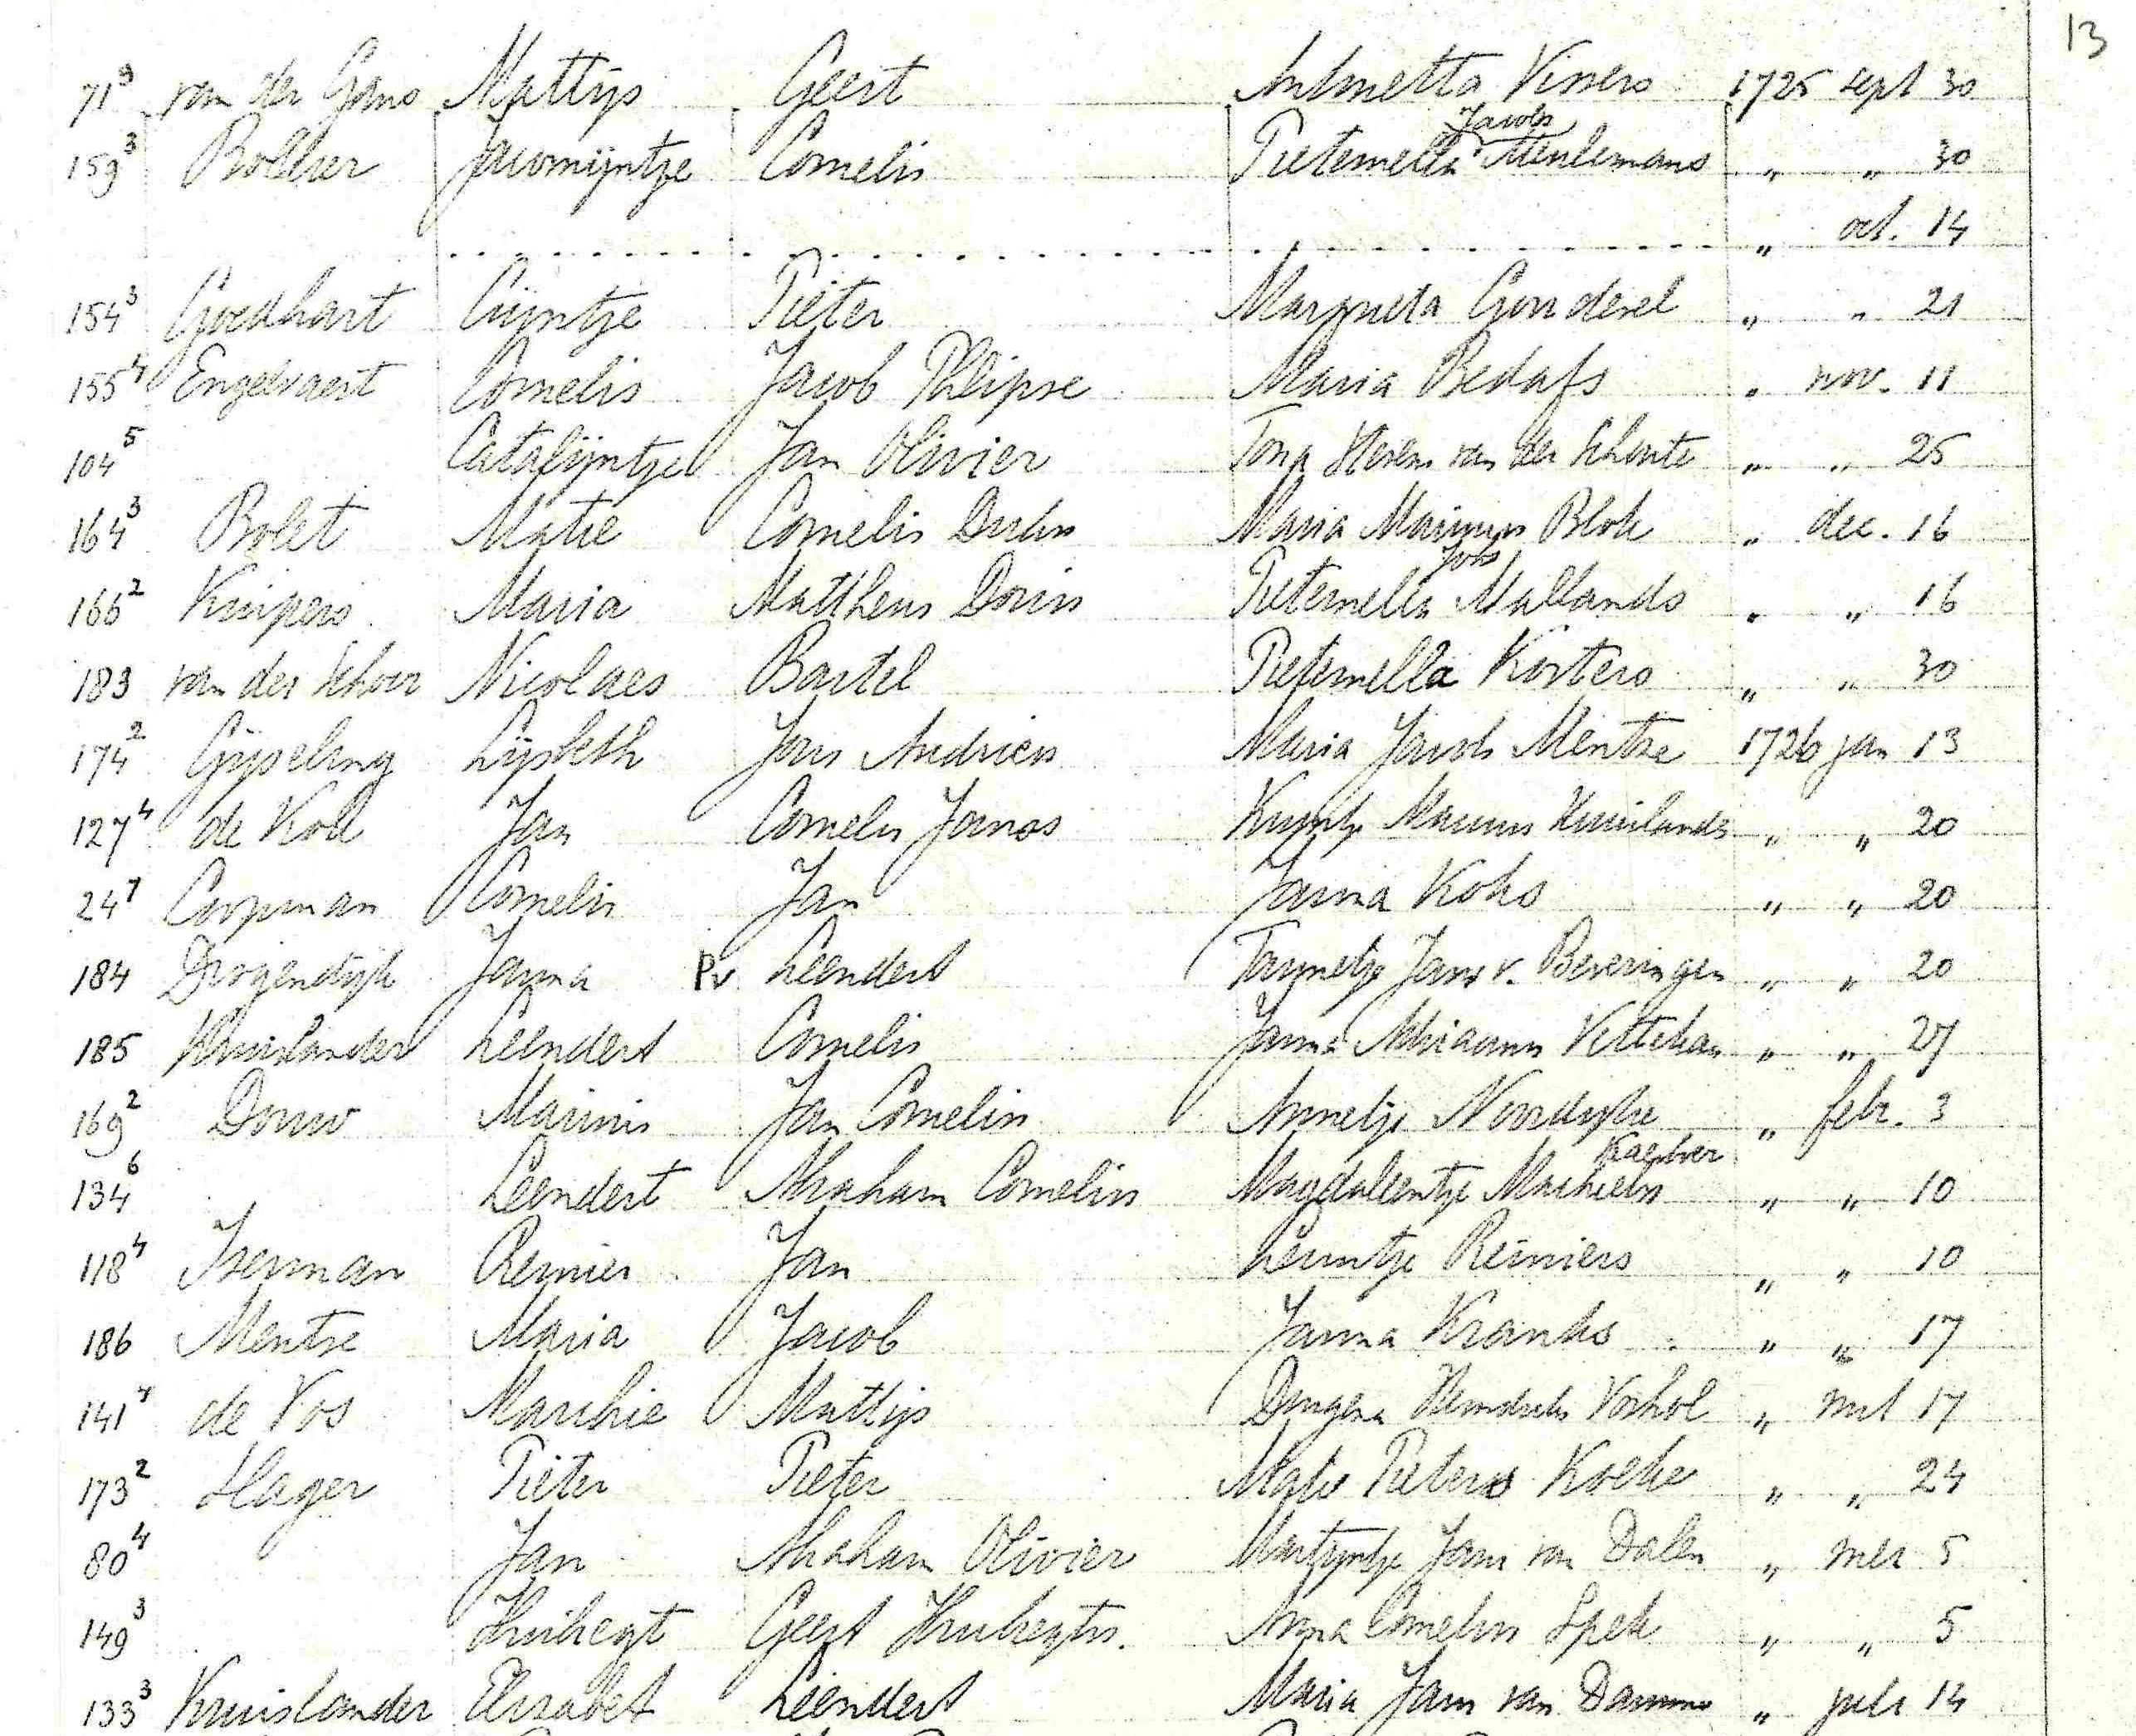 13
71⁹ van der Gans Mattijs Geert Antonetta Vissers 1725 sept 30
Jacobs
159³ Bolleier Jacomijntje Cornelis Pieternella Meulemans " " 30
" oct. 14
154³ Goedhart Cijntje Pieter Margrieta " " 21
155⁴ Engelvaert Cornelis Jacob Phlipse Maria Bedafs " nov. 11
104⁵ Catalijntje Jan Olivier Tona van der Schente " " 25
164³ Bolet Matie Cornelis Maria Marinus Blok " dec. 16
Jobs
166² Kuipers Maria Mattheus Doris Pieternella Mallands " " 16
183 van der Schoor Nicolaes Bartel Pieternella Kosters " " 30
174² Gijseling Lijsbeth Jan Andries Maria Jacobs Mentse 1726 jan 13
127⁴ de Kok Jan Cornelis Jonas Marinus Kruislands " " 20
24⁷ Coopman Cornelis Jan Janna Koks " " 20
184 Drogendijk Janna Pv Leendert Tannetje Jans v. Beveringen " " 20
185 Kruislander Leendert Cornelis Janna Adriaanus " " 27
169² Douw Marinis Jan Cornelis Annetje Noordijke " febr. 3
134⁶ Leendert Abraham Cornelis Magdaleentje Machiels " " 10
118⁴ Iserman Reinier Jan Leuntje Reiniers " " 10
186 Mentse Maria Jacob Janna Kranks " " 17
141⁴ de Vos Marchie Mattijs Dingena Hendriks Voshol " mrt 17
173² Hager Pieter Pieter Matie Pieters Koeke " " 24
80⁴ Jan Abraham Olivier Martijntje Jans van Dalen " mei 5
149³ Huibregt Geert Huibregts. Anna Cornelis Spek " " 5
133³ Kruislander Elisabet Leendert Maria Jans van Damme " juli 14